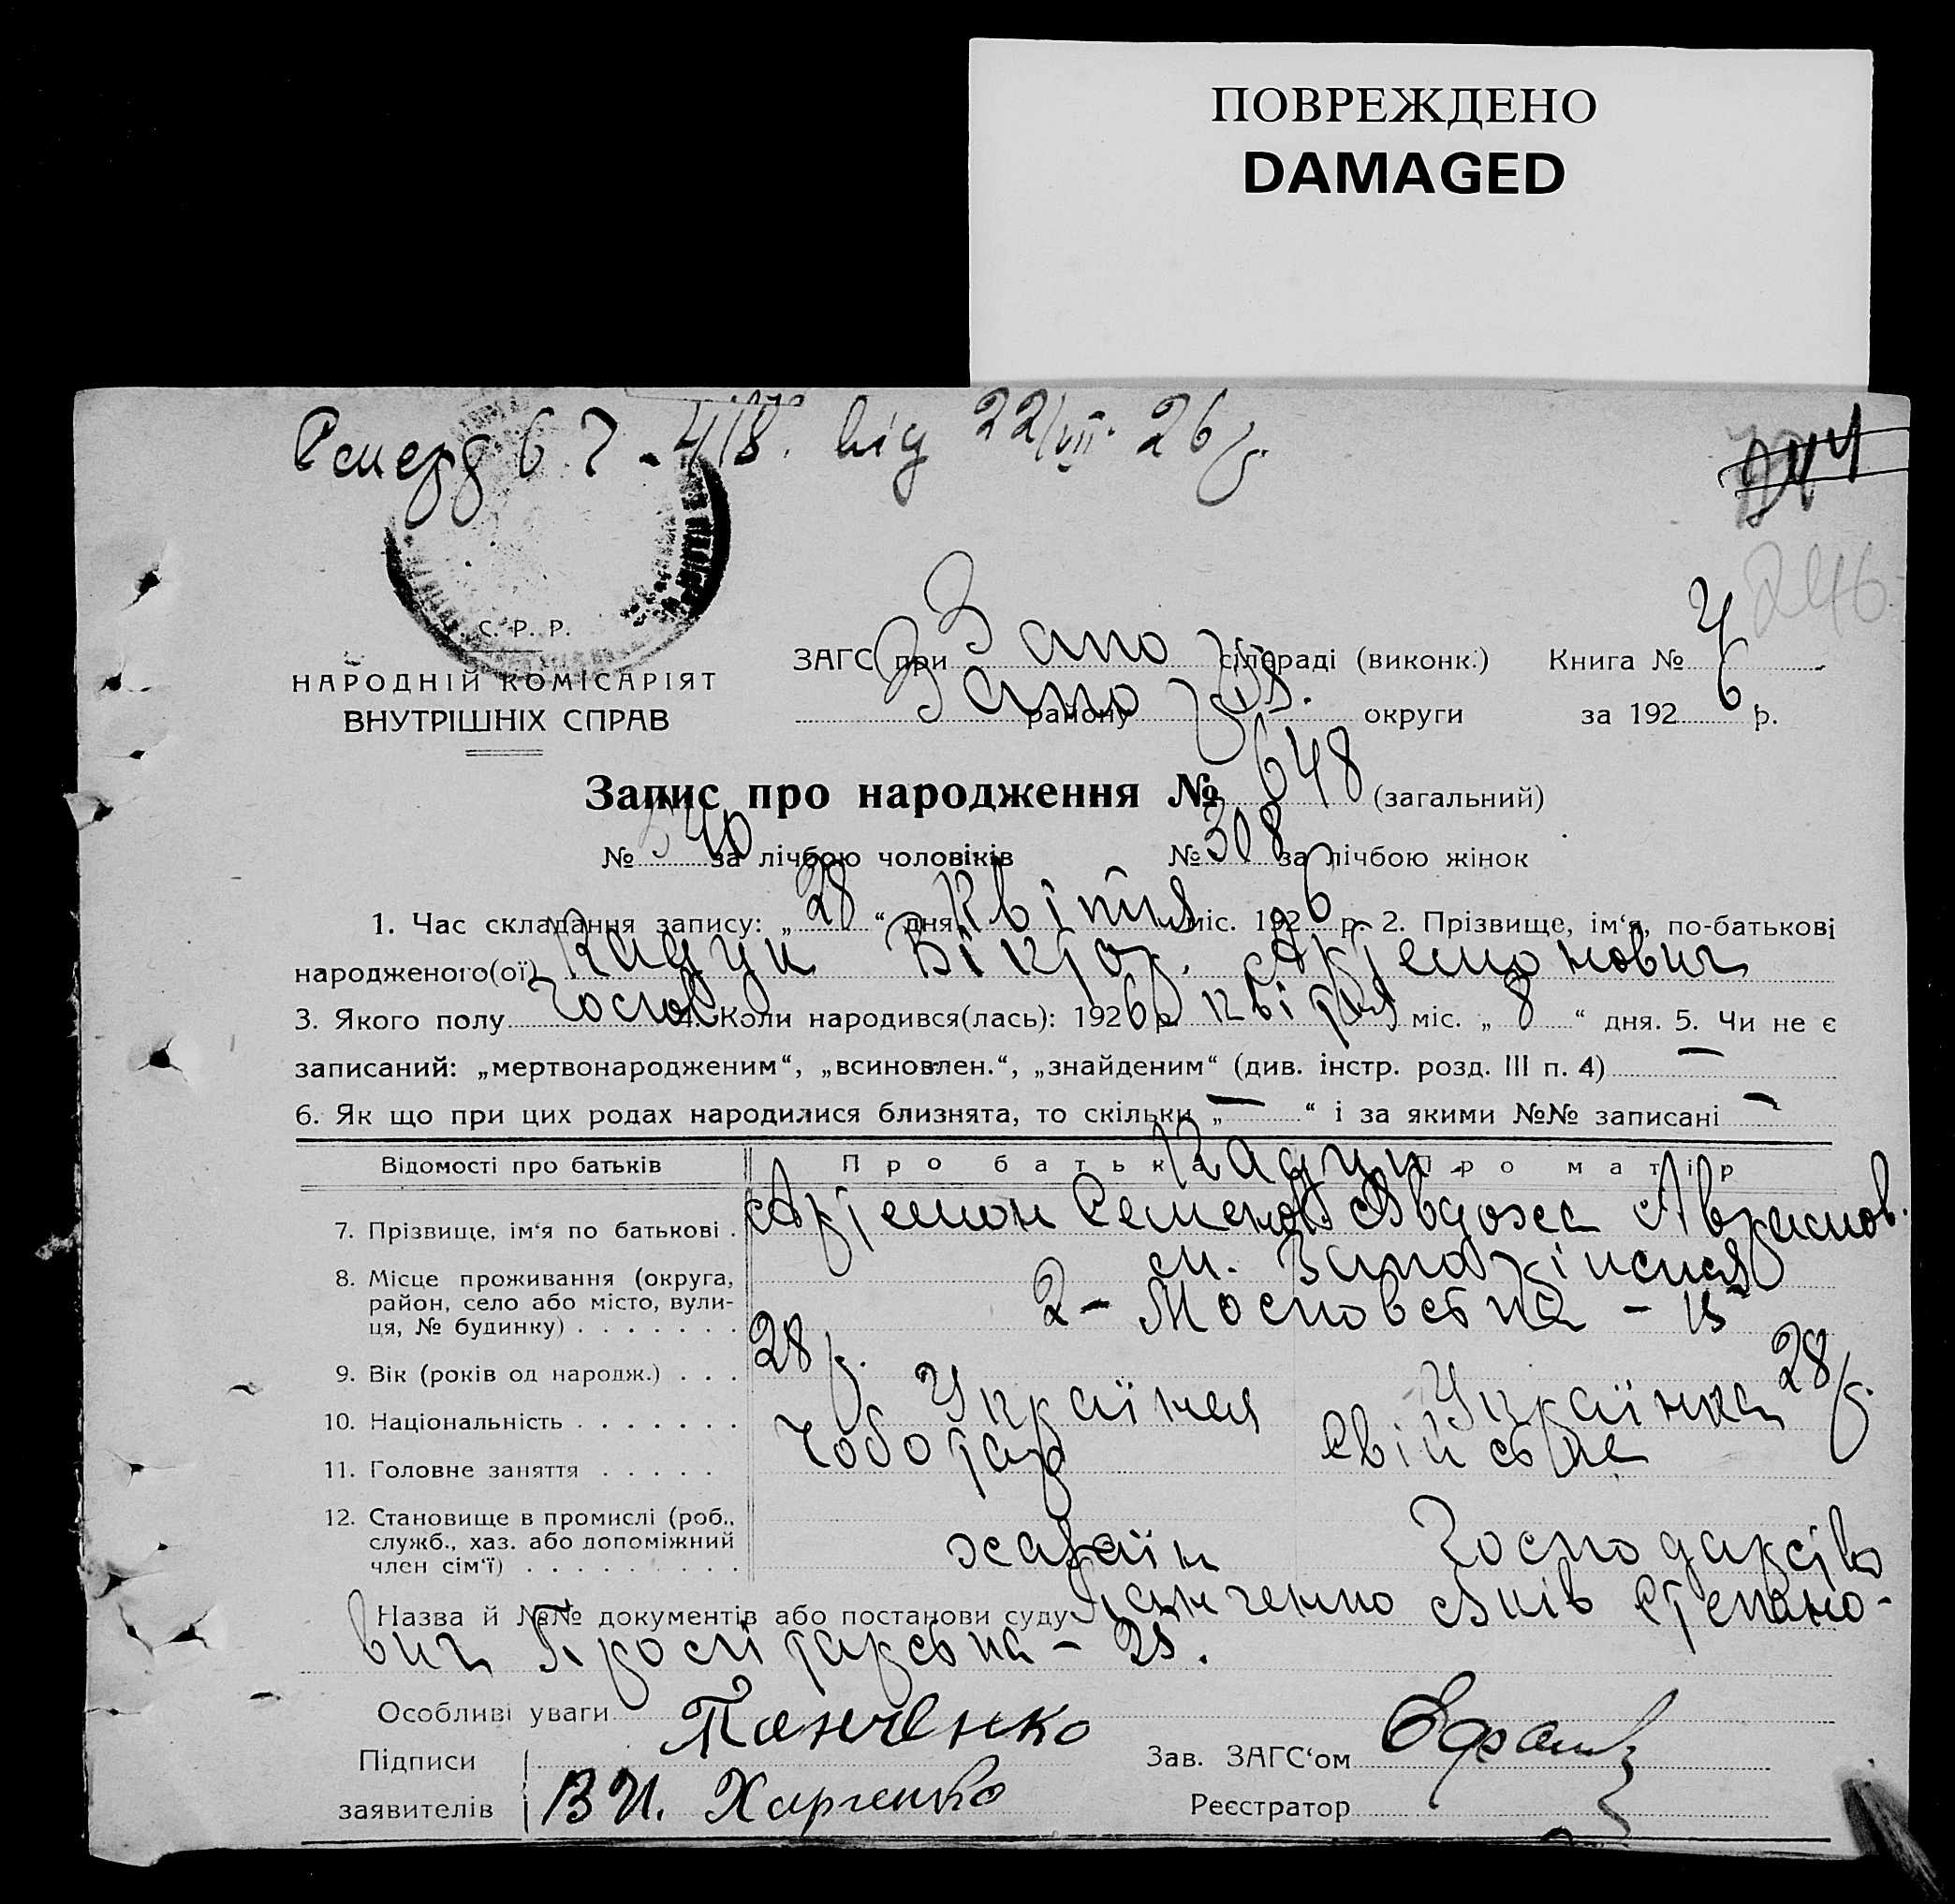 ПОВРЕЖДЕНО
DAMAGED
418. від 22/VII 26 р.
246
С. Р. Р.
НАРОДНІЙ КОМІСАРІЯТ
ВНУТРІШНІХ СПРАВ
ЗАГС при Запо сільраді (виконк.) Книга № 4
Запо району округи за 1926 р.
Запис про народження № 648 (загальний)
№ 340 за лічбою чоловіків № 308 за лічбою жінок
1. Час складання запису: „28“ дня Квітня міс. 1926 р. 2. Прізвище, ім‘я, по-батькові
народженого(ої) Кацун Віктор. Артемонович
3. Якого полу Чолов 4. Коли народився(лась): 1926 р. квітня міс. „8“ дня. 5. Чи не є
записаний: „мертвонародженим“, „всиновлен.“, „знайденим“ (див. інстр. розд. III п. 4) —
6. Як що при цих родах народилися близнята, то скільки „—“ і за якими №№ записані —
Відомості про батьків Про батька Про матір
Кацун
7. Прізвище, ім‘я по батькові . Артемон Семенов Авдожа Аврамов.
8. Місце проживання (округа, район, село або місто, вули-ця, № будинку) . . . . . . . м.
2 - Московська - 15
9. Вік (років од народж.) . . . 28 р. 28 р.
10. Національність . . . . . . . Українец Українка
11. Головне заняття . . . . . Чоботар Свійське
12. Становище в промислі (роб., служб., хаз. або допоміжний член сім‘ї) . . . . . . . . . хазаїн Господарство
Назва й №№ документів або постанови суду Панченко Яків Степано-
вич - 25.
Особливі уваги
Підписи заявителів Панченко
В И. Харченко
Зав. ЗАГС‘ом
Реєстратор